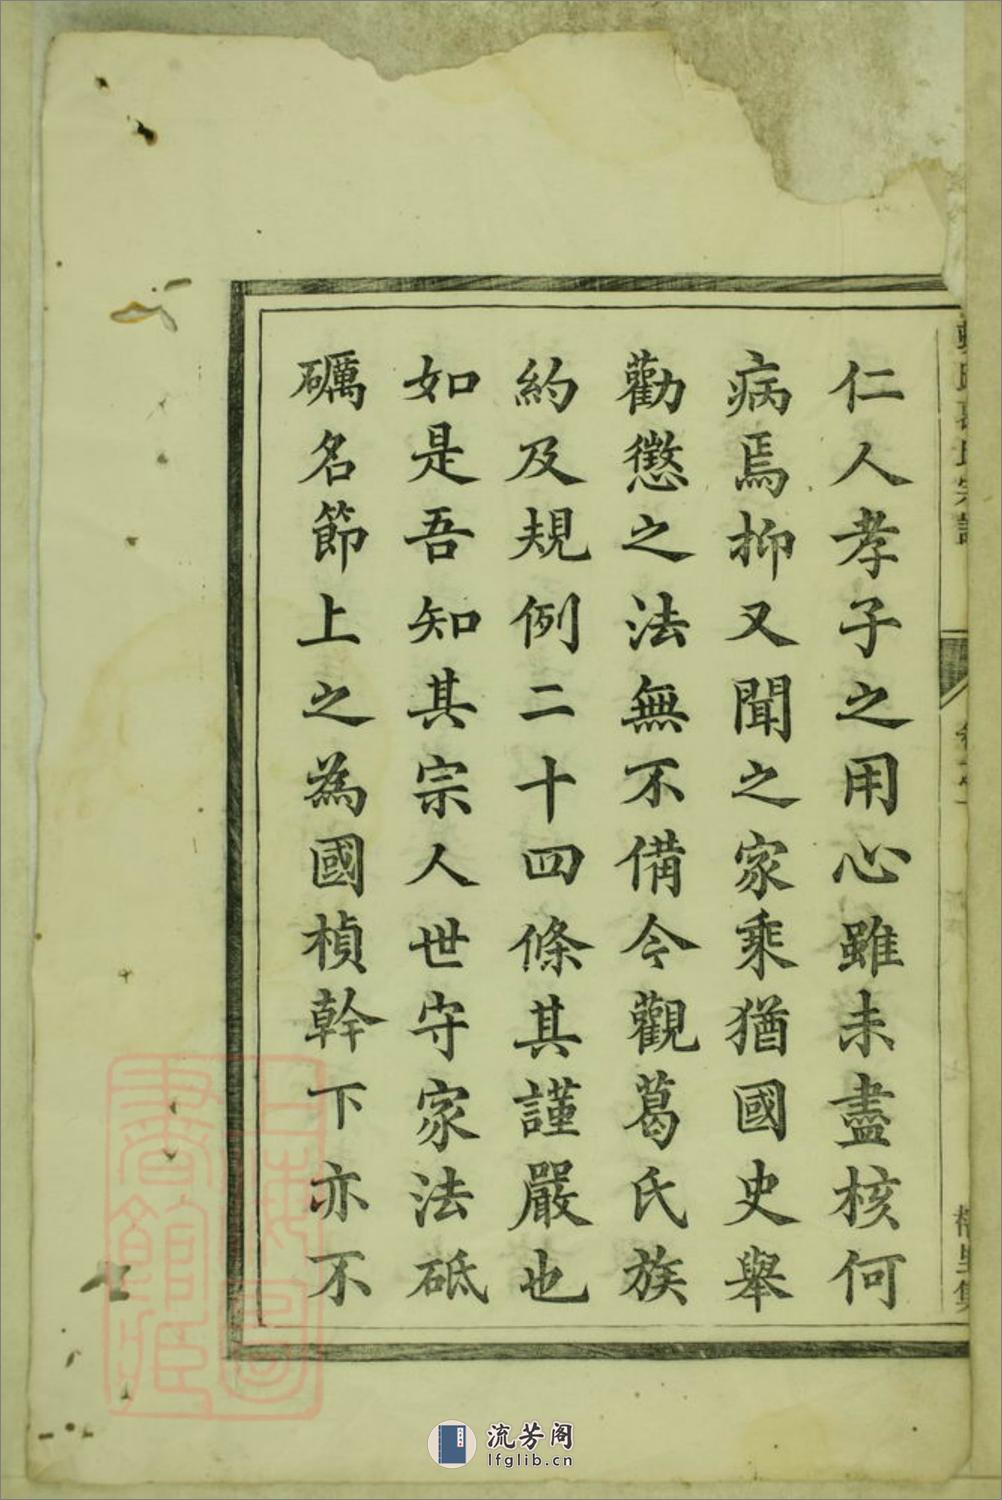 仁人孝子之用心雖未盡核何
病焉抑又聞之家乘猶國史舉
勸懲之法無不備今觀葛氏族
約及規例二十四條其謹嚴也
如是吾知其宗人世守家法砥
礪名節上之為國楨幹下亦不
上海圖書館藏
流芳阁
lfglib.cn